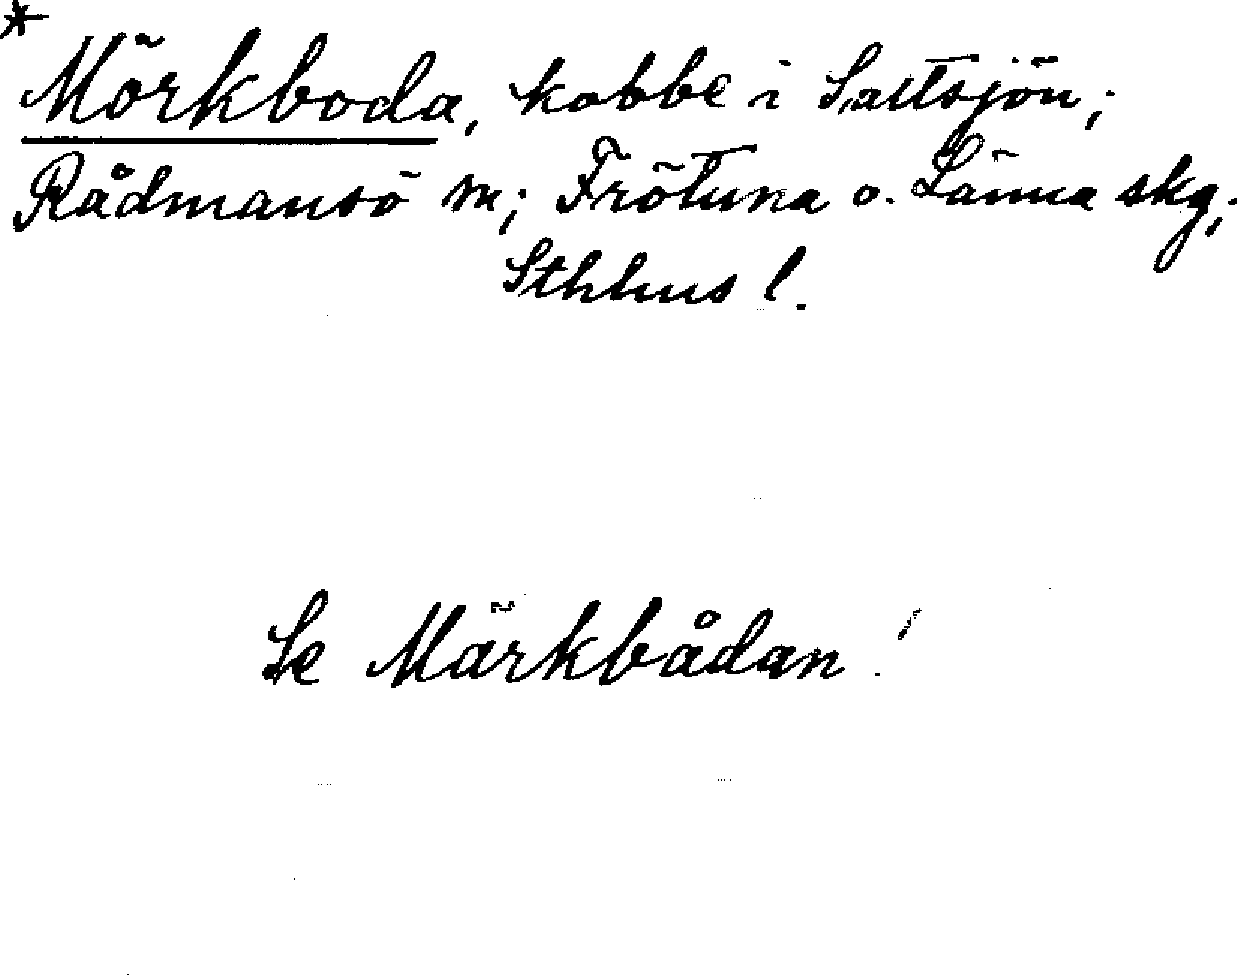 *
Mörkboda, kobbe i Saltsjön;
Rådmansö sn; Frötuna o. Länna skg;
Sthlms l.
Se Märkbådan!